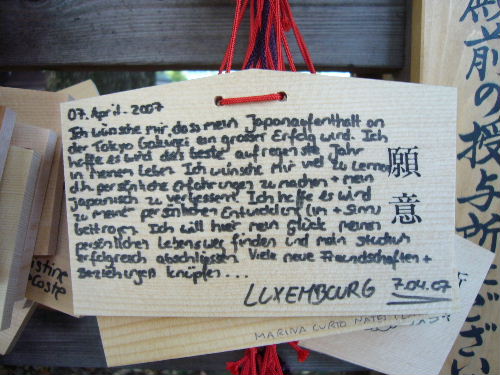 07. April - 2007
Ich wünsche mir, dass mein Japanaufenthalt an
der Tokyo Gakugei ein grosser Erfolg wird. Ich
hoffe es wird das beste Jahr
in meinen Leben. Ich wünsche mir viel zu lernen
d.h. persönliche Erfahrungen zu machen + mein
Japanisch zu verbessern. Ich hoffe es wird
zu meiner persönlichen Entwicklung
beitragen. Ich will hier mein Glück, meinen
persönlichen Lebensweg finden und mein Studium
erfolgreich abschliessen. Viele neue Freundschaften +
Beziehungen knüpfen...
LUXEMBOURG 7.04.07
願意
MARINA CURTO
御前の授与所
ござい